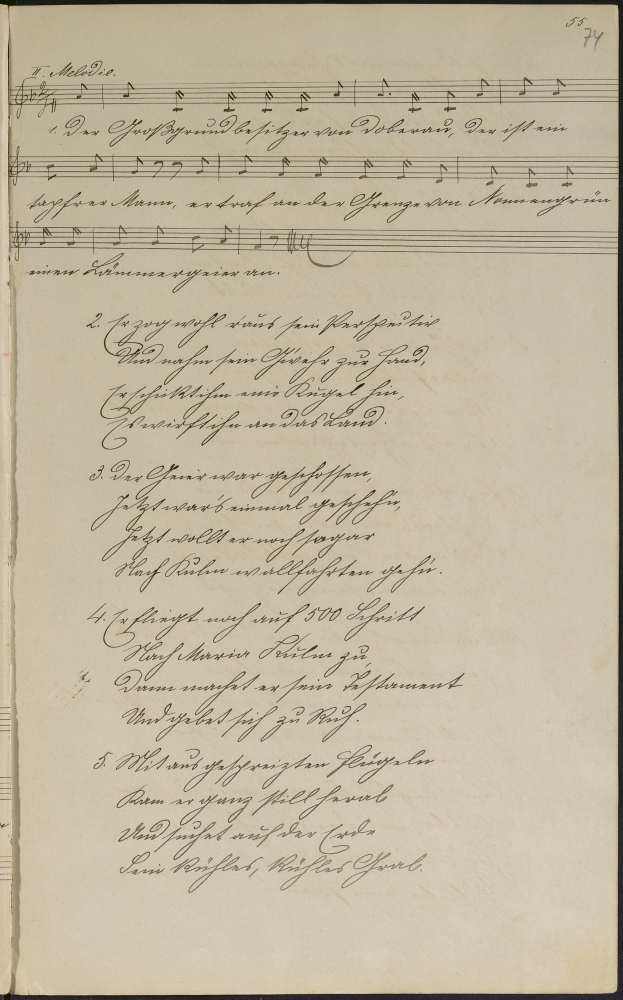 55
74
II. Melodie.
1. Der Großgrundbesitzer von Doberau, der ist ein
tapfrer Mann, er traf an der Grenze von Nonnengrün
einen Lämmergeier an.
2. Er zog wohl raus sein Perspectiv
Und nahm sein Gwehr zur Hand,
Er schickt ihm eine Kugel hin,
Es wirft ihn an das Land.
3. Der Geier war geschossen,
Jetzt war's einmal gescheh'n,
Jetzt wollt er noch sogar
Nach Kulm wallfahrten geh'n.
4. Er fliegt noch auf 500 Schritt
Nach Maria Kulm zu,
Dann machet er sein Testament
Und gebet sich zu Ruh.
5. Mit ausgespreizten Flügeln
Kam er ganz still herab
Und suchet auf der Erde
Sein kühles, kühles Grab.